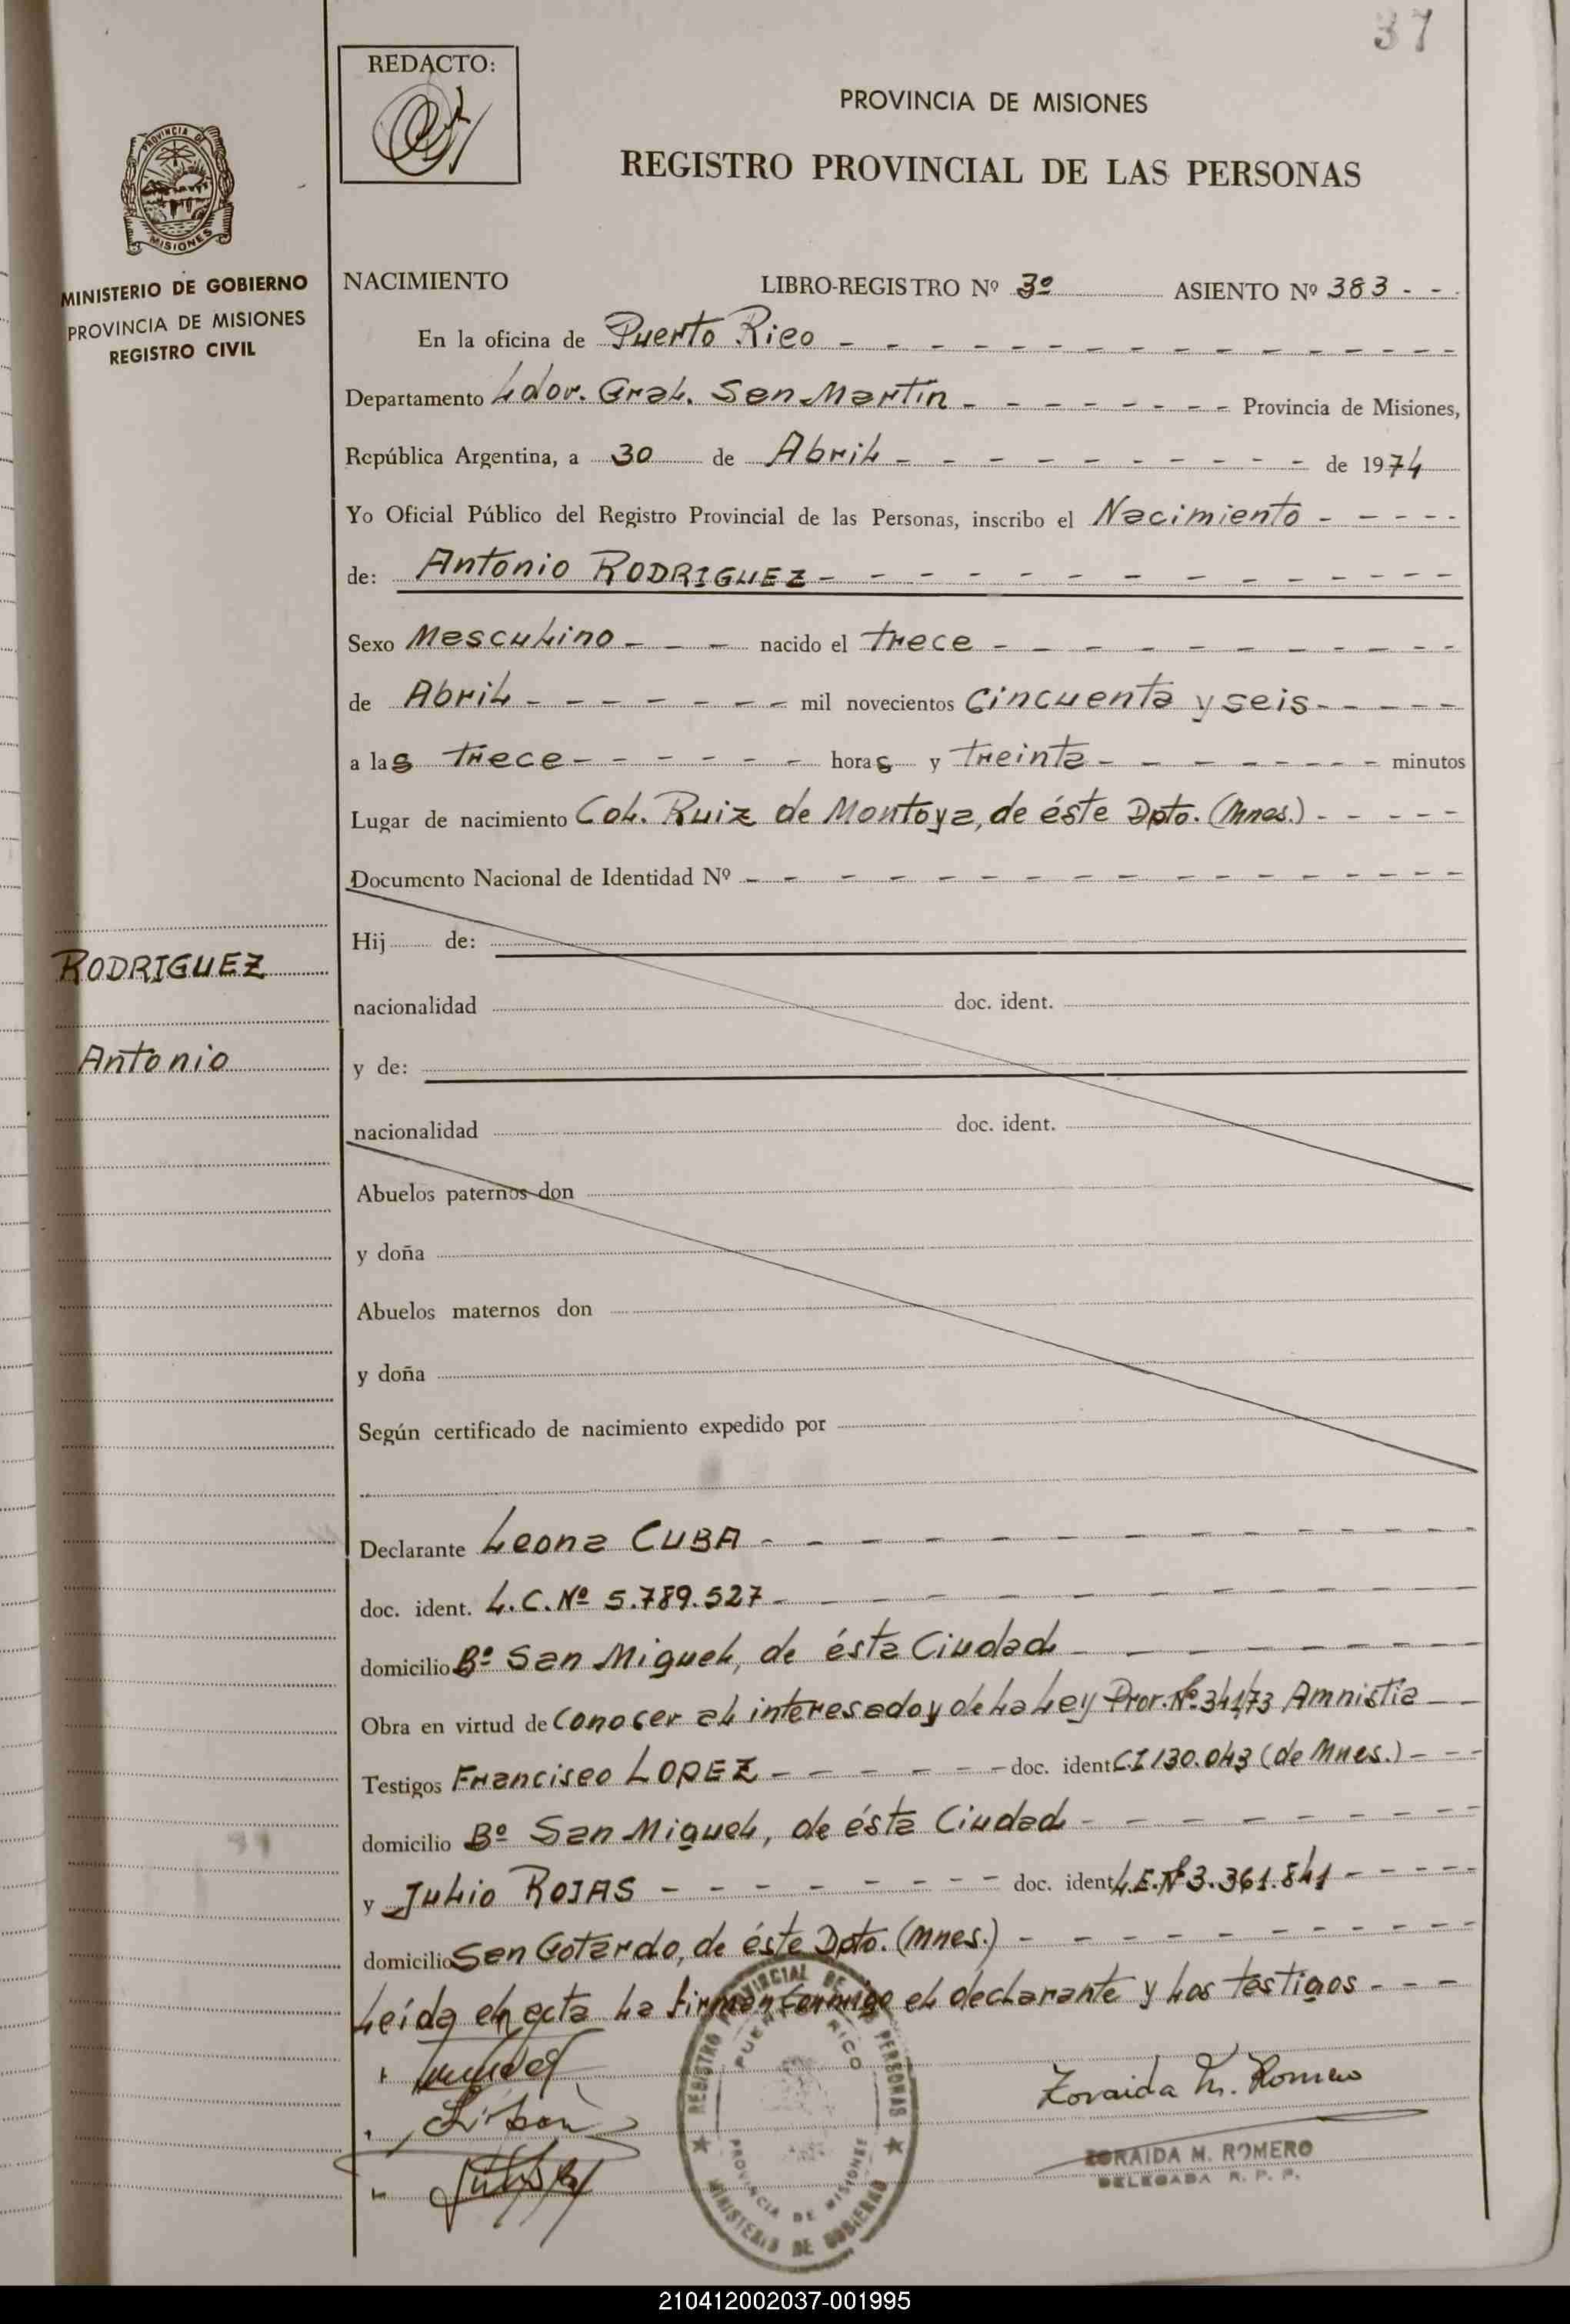 37
REDACTO:
PROVINCIA DE MISIONES
REGISTRO PROVINCIAL DE LAS PERSONAS
PROVINCIA DE
MISIONES
MINISTERIO DE GOBIERNO
PROVINCIA DE MISIONES
REGISTRO CIVIL
NACIMIENTO LIBRO-REGISTRO Nº 3º ASIENTO Nº 383 - -
En la oficina de Puerto Rico
Departamento Ldor. Gral. San Martín Provincia de Misiones,
República Argentina, a 30 de Abril de 1974
Yo Oficial Público del Registro Provincial de las Personas, inscribo el Nacimiento
de: Antonio RODRIGUEZ
Sexo Masculino nacido el trece
de Abril mil novecientos cincuenta y seis
a las trece horas y treinta minutos
Lugar de nacimiento Col. Ruiz de Montoya, de éste Dpto. (Mnes.)
Documento Nacional de Identidad Nº
Hij de:
RODRIGUEZ
nacionalidad doc. ident.
Antonio
y de:
nacionalidad doc. ident.
Abuelos paternos don
y doña
Abuelos maternos don
y doña
Según certificado de nacimiento expedido por
Declarante Leona CUBA
doc. ident. L.C. Nº 5.789.527
domicilio Bº San Miguel, de ésta Ciudad
Obra en virtud de conocer al interesado y de la Ley Pror. Nº 341/73 Amnistia
Testigos Francisco LOPEZ doc. ident C.I 130.043 (de Mnes.)
domicilio Bº San Miguel, de ésta Ciudad
y Julio ROJAS doc. ident L.E. Nº 3.361.841
domicilio San Gotardo, de éste Dpto. (Mnes.)
Leída el acta la firman conmigo el declarante y los testigos
REGISTRO PROVINCIAL DE LAS PERSONAS
PUERTO RICO
PROVINCIA DE MISIONES
MINISTERIO DE GOBIERNO
Zoraida M. Romero
ZORAIDA M. ROMERO
DELEGADA R. P. P.
210412002037-001995